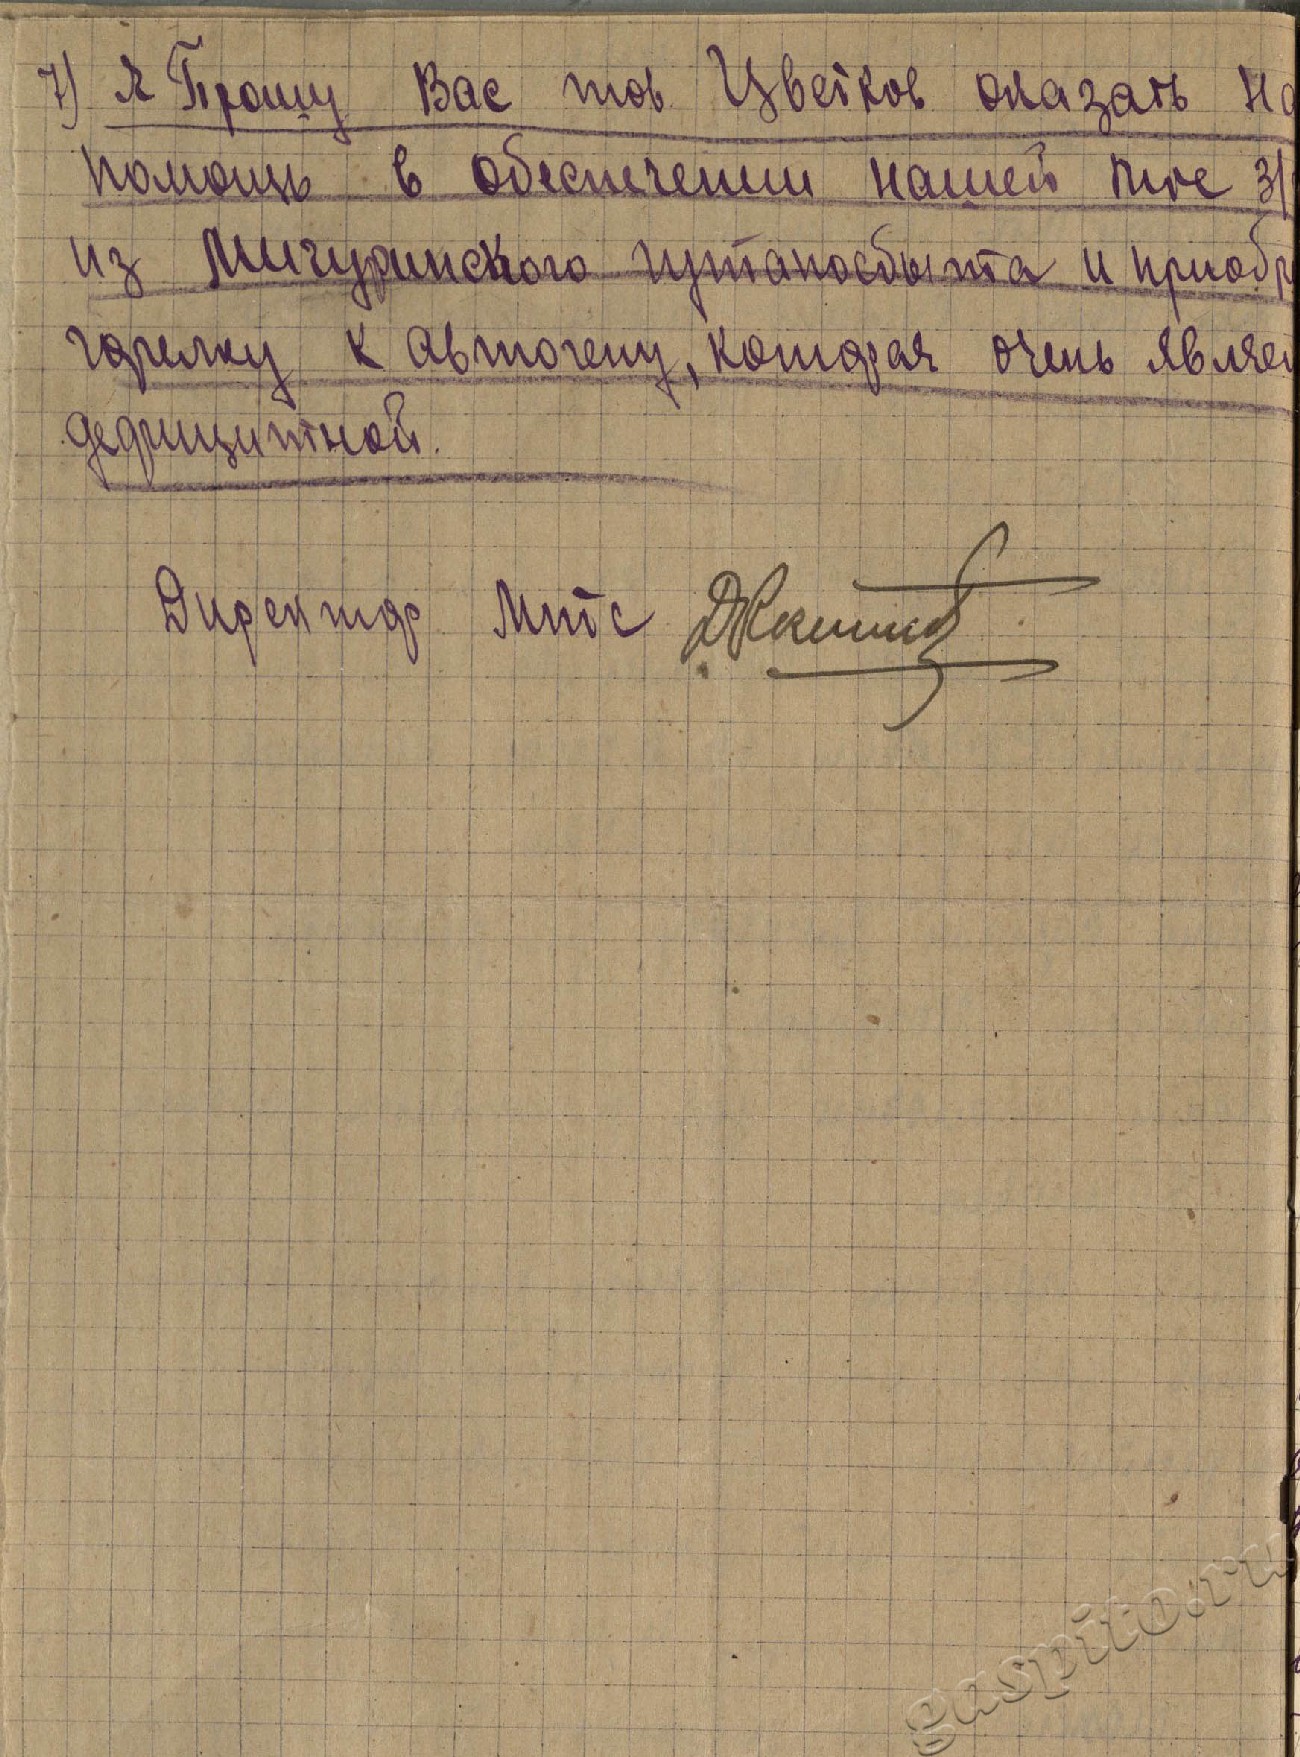 7) Я Прошу Вас тов Цветков оказать на
помощь в обеспечении нашей мтс з/
из Мичуринского путапосбыта и приобр
горелку к автогену, которая очень являе
дефицитной.
Директор Мтс
gaspito.ru